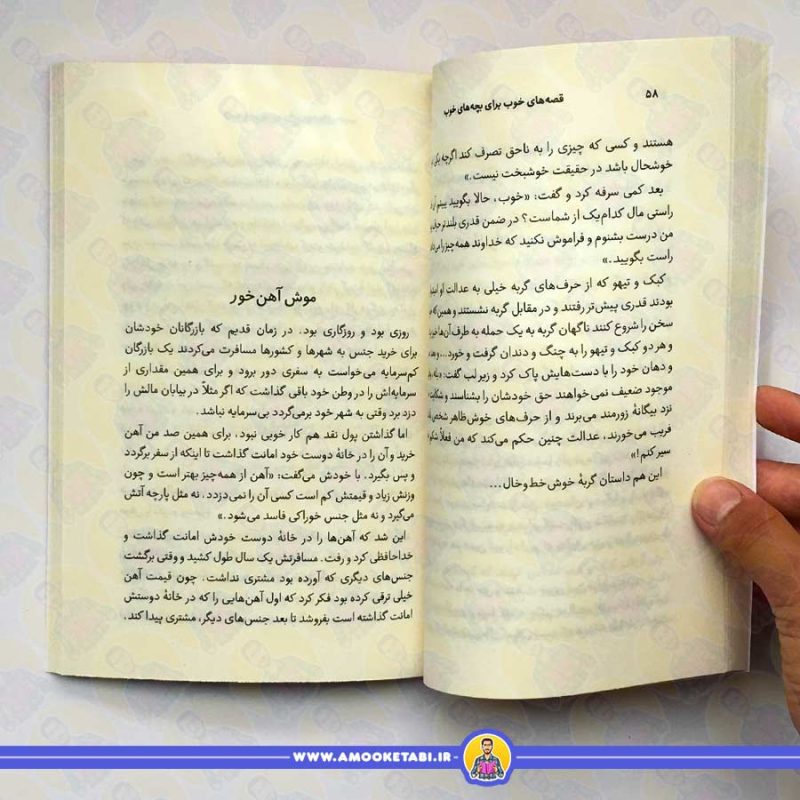 ۵۸
قصه‌های خوب برای بچه‌های خوب
هستند و کسی که چیزی را به ناحق تصرف کند اگرچه
خوشحال باشد در حقیقت خوشبخت نیست.»
بعد کمی سرفه کرد و گفت: «خوب، حالا بگویید ببینم
راستی مال کدام‌یک از شماست؟ در ضمن قدری بلندتر
من درست بشنوم و فراموش نکنید که خداوند همه‌چیز را
راست بگویید.»
کبک و تیهو که از حرف‌های گربه خیلی به عدالت او
بودند قدری پیش‌تر رفتند و در مقابل گربه نشستند و همین‌که
سخن را شروع کنند ناگهان گربه به یک حمله به طرف آن‌ها
و هر دو کبک و تیهو را به چنگ و دندان گرفت و خورد...
و دهان خود را با دست‌هایش پاک کرد و زیر لب گفت:
موجود ضعیف نمی‌خواهند حق خودشان را بشناسند و
نزد بیگانهٔ زورمند می‌برند و از حرف‌های خوش‌ظاهر شخص
فریب می‌خورند، عدالت چنین حکم می‌کند که من فعلاً
سیر کنم!»
این هم داستان گربهٔ خوش‌خط‌وخال...
موش آهن‌خور
روزی بود و روزگاری بود. در زمان قدیم که بازرگانان خودشان
برای خرید جنس به شهرها و کشورها مسافرت می‌کردند یک بازرگان
کم‌سرمایه می‌خواست به سفری دور برود و برای همین مقداری از
سرمایه‌اش را در وطن خود باقی گذاشت که اگر مثلاً در بیابان مالش را
دزد برد وقتی به شهر خود برمی‌گردد بی‌سرمایه نباشد.
اما گذاشتن پول نقد هم کار خوبی نبود، برای همین صد من آهن
خرید و آن را در خانهٔ دوست خود امانت گذاشت تا اینکه از سفر برگردد
و پس بگیرد. با خودش می‌گفت: «آهن از همه‌چیز بهتر است و چون
وزنش زیاد و قیمتش کم است کسی آن را نمی‌دزدد، نه مثل پارچه آتش
می‌گیرد و نه مثل جنس خوراکی فاسد می‌شود.»
این شد که آهن‌ها را در خانهٔ دوست خودش امانت گذاشت و
خداحافظی کرد و رفت. مسافرتش یک سال طول کشید و وقتی برگشت
جنس‌های دیگری که آورده بود مشتری نداشت. چون قیمت آهن
خیلی ترقی کرده بود فکر کرد که اول آهن‌هایی را که در خانهٔ دوستش
امانت گذاشته است بفروشد تا بعد جنس‌های دیگر، مشتری پیدا کند.
WWW.AMOOKETABI.IR